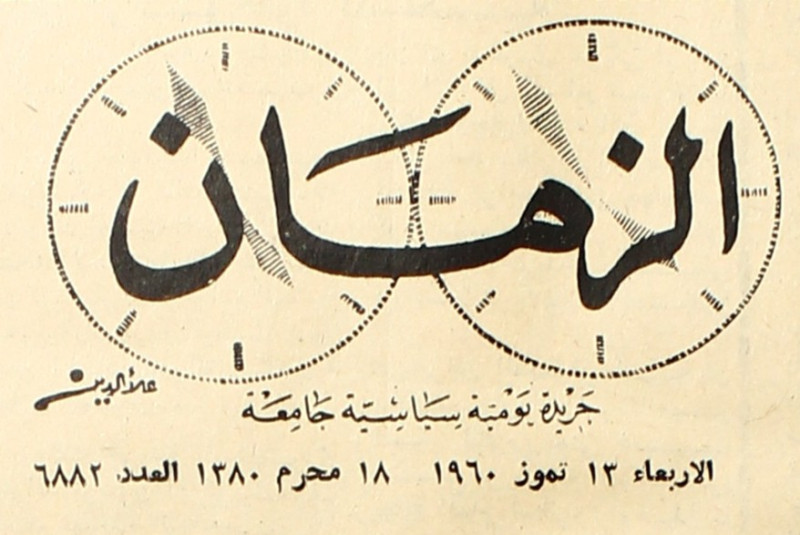 الزمان
علاءالدين
جَريدة يَوميَة سِيَاسِيّة جَامِعَة
الاربعاء ١٣ تموز ١٩٦٠ ١٨ محرم ١٣٨٠ العدد ٦٨٨٢